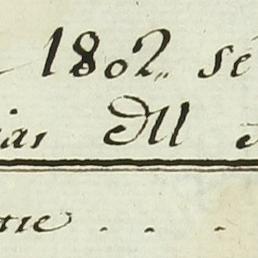 1802,, sé
ias Dll
tre . . .